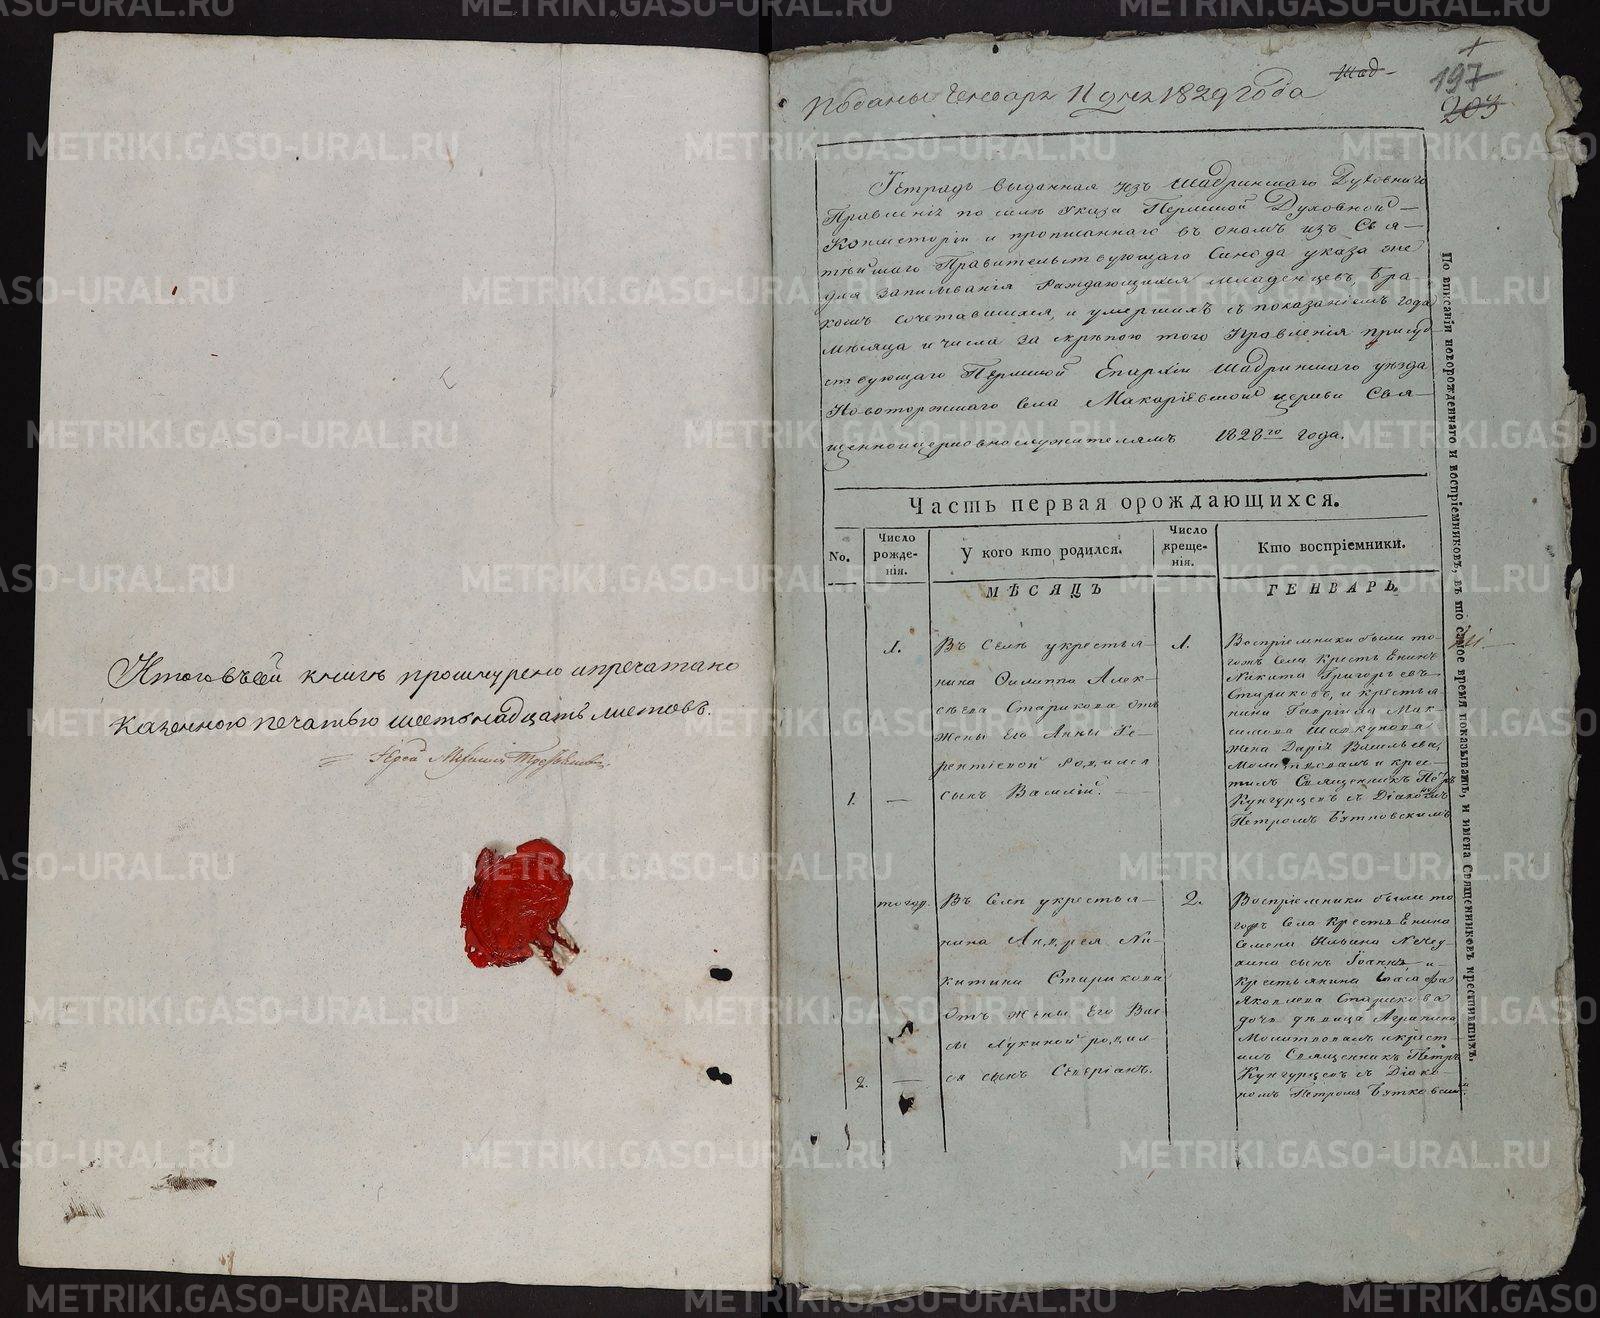 Итого въ сей книгѣ прошнурено и пречатано
казенною печатью шестьнадцать листовъ.
Іерей
Поданы Генваря 11 дня 1829 года
197
203
Тетрадь выданная изъ Шадринскаго Духовнаго
Правленія по силѣ Указа Пермской Духовной
Консисторіи и прописаннаго въ ономъ изъ Свя-
тѣйшаго Правительствующаго Синода указа же
для записыванія раждающихся младенцевъ, бра-
комъ сочетавшихся, и умершихъ съ показаніемъ года
мѣсяца и числа за скрѣпою того Правленія присуд-
ствующаго Пермской Епархіи Шадринскаго уѣзда
Новоторжскаго села Макаріевской церкви Свя-
щенноицерковнослужителямъ 1828го года.
Часть первая орождающихся.
No.
Число рожде-нія.
У кого кто родился.
Число креще-нія.
Кто воспріемники.
МѢСЯЦЪ
ГЕНВАРЬ.
1.
Въ Селѣ укрестья-
нина Филиппа Алек-
сѣева Старикова отъ
жены Его Анны Те-
рентіевой родился
1. — сынъ Василій.
1.
Воспріемники были то-
гожъ Села Крестьенинъ
Никита Григорьевъ
Стариковъ, и крестья-
нина Гаврила Мак-
симова Шапкунова
жена Дарія Васильева,
Молитвовалъ и крес-
тилъ Священникъ Петръ
Кунгурцевъ съ Діакономъ
Петромъ Вятковскимъ
тогож.
Въ Селѣ укрестья-
нина Андрея Ни-
китина Старикова
Отъ жены Его Вас
сы Лукиной родил
2. — ся сынъ Северіанъ.
2.
Воспріемники были то
гожъ Села Крестьенина
Семена Ильина
сынъ Іоаннъ и
Крестьянина
Яковлева Старикова
дочь дѣвица Агрипина
Молитвовалъ икрест-
илъ Священникъ Петръ
Кунгурцевъ съ Діако-
номъ Петромъ Вятковским.
По вписаніи новорожденнаго и воспріемниковъ, въ то самое время показывать, и имена Священниковъ крестившихъ.
METRIKI.GASO-URAL.RU